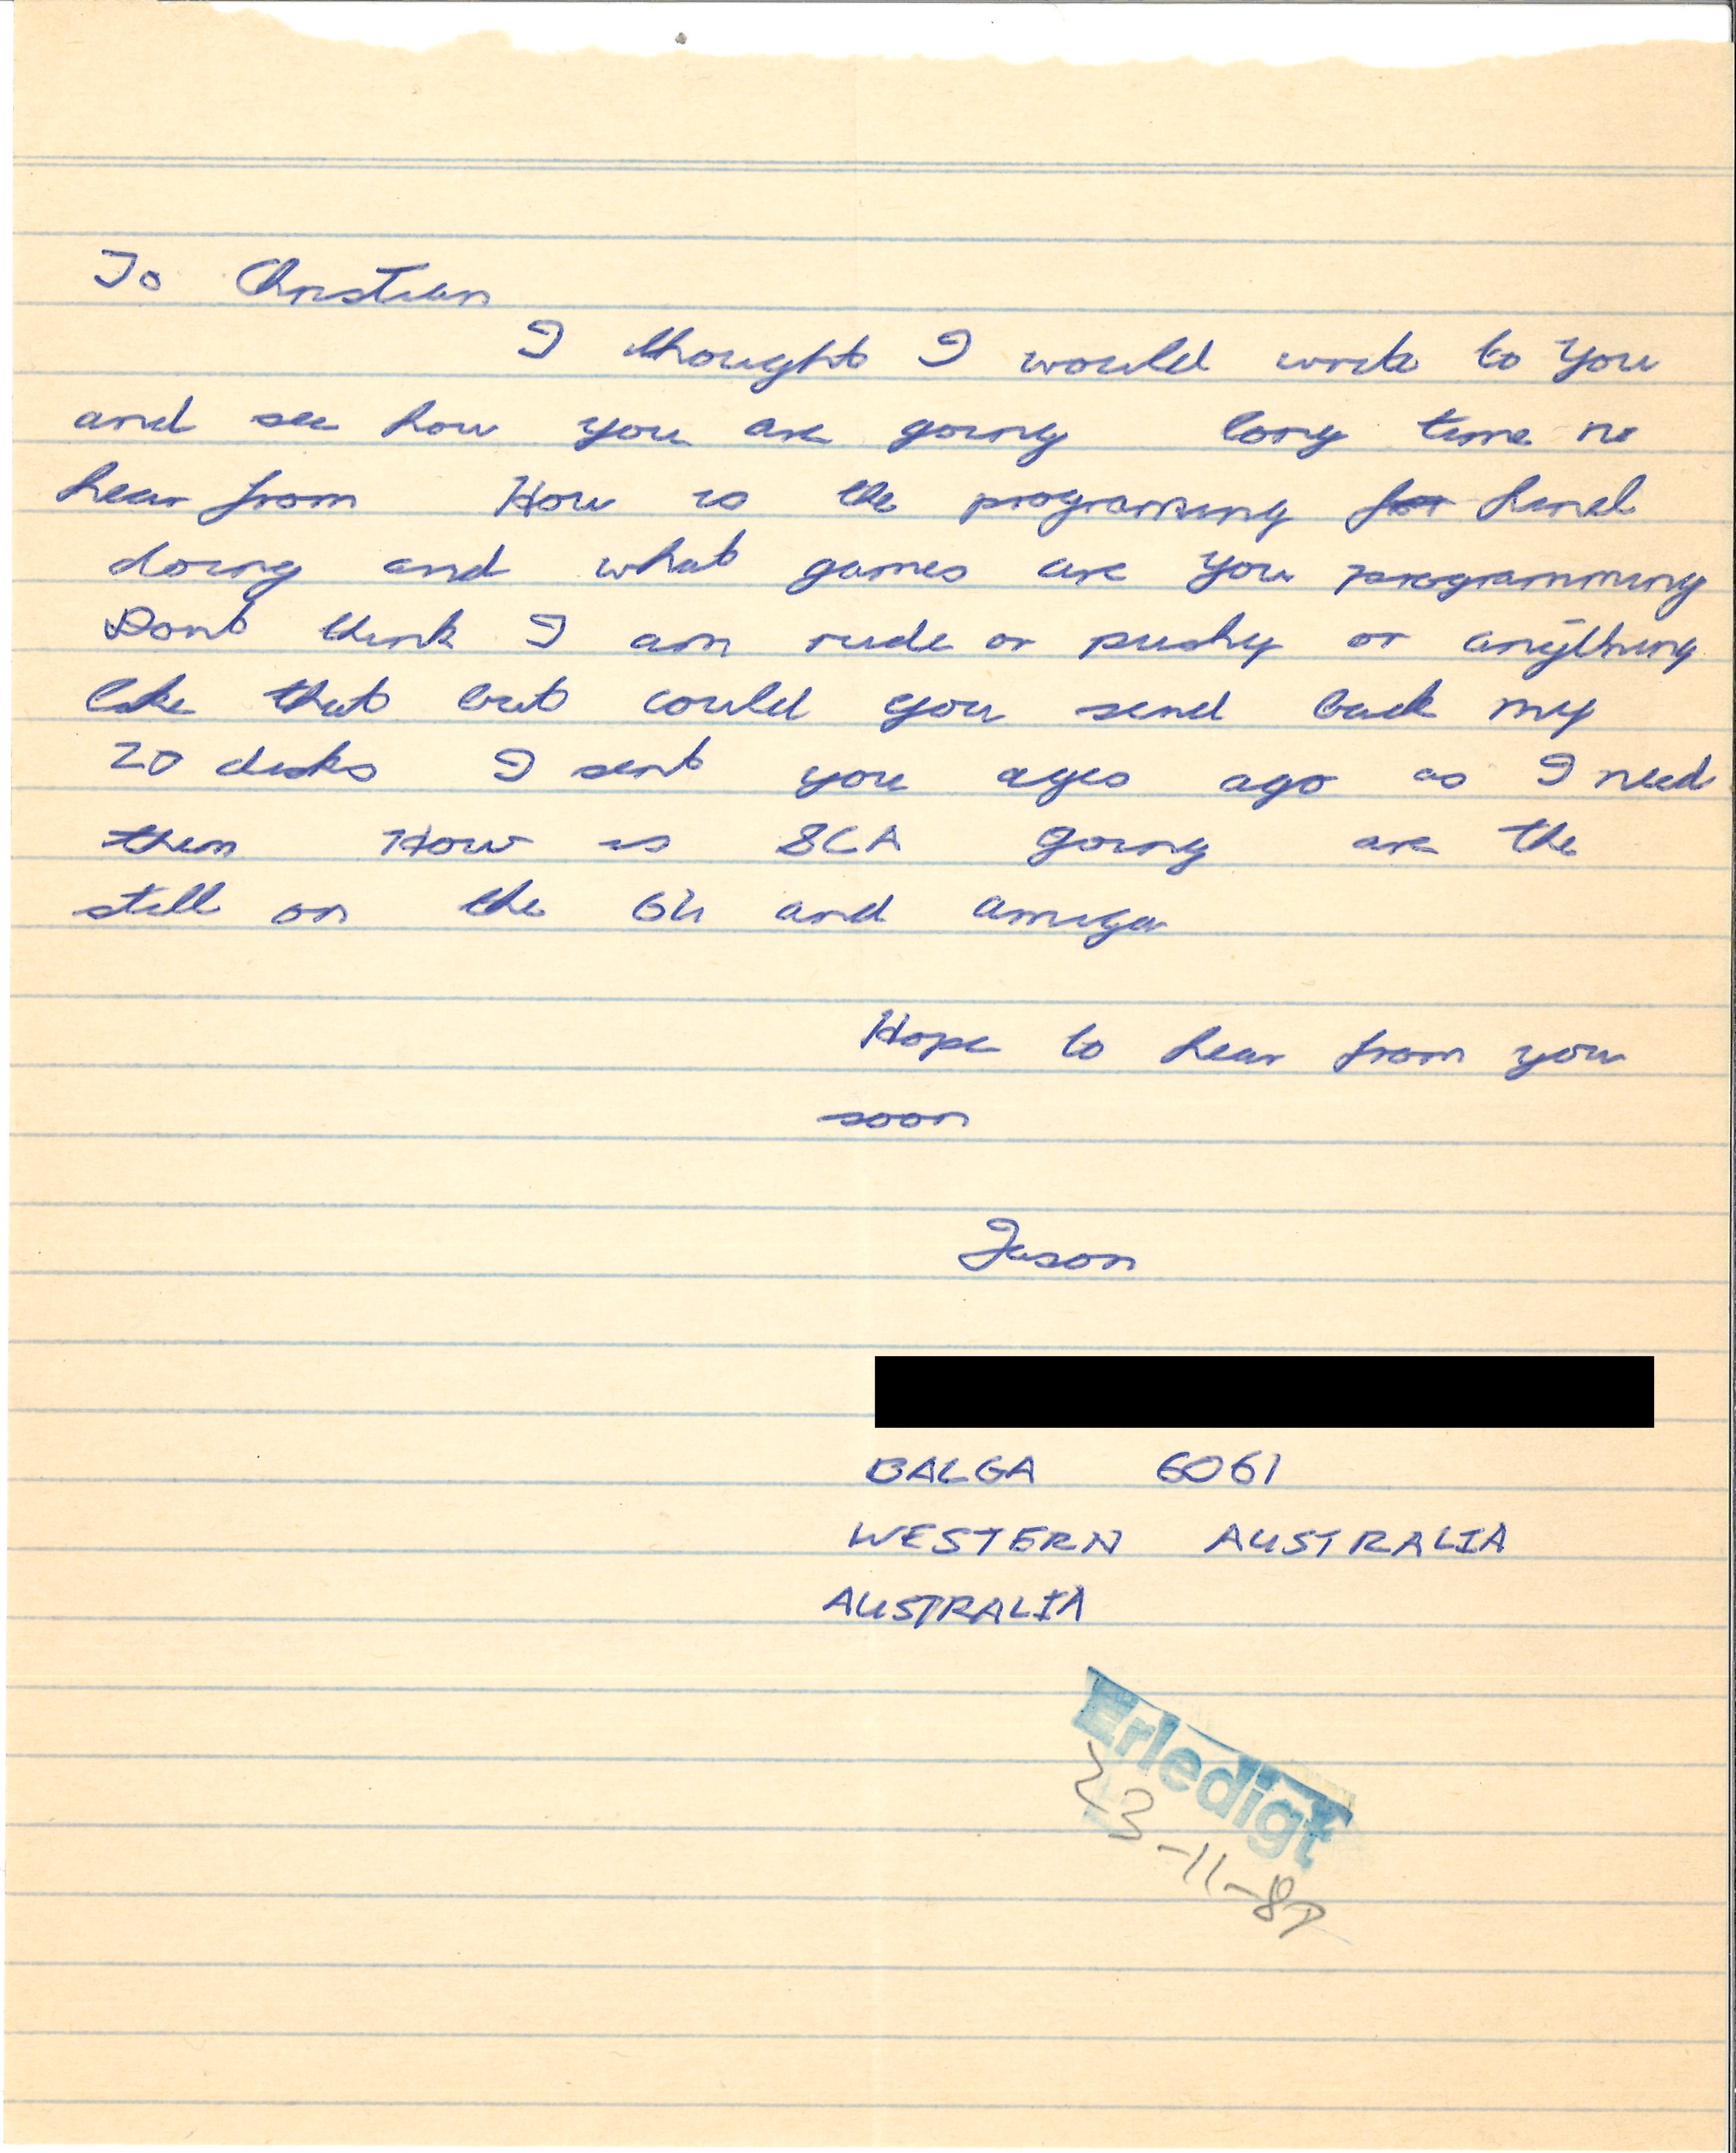 To Christian
I thought I would write to you
and see how you are going long time no
hear from How is the programing for hand
doing and what games are you programming
Dont think I am rude or pushy or anything
like that but could you send back my
20 disks I sent you ages ago as I need
them How is SCA going are the
still on the 64 and amiga
Hope to hear from you
soon
Jason
BALGA 6061
WESTERN AUSTRALIA
AUSTRALIA
Erledigt
23-11-87